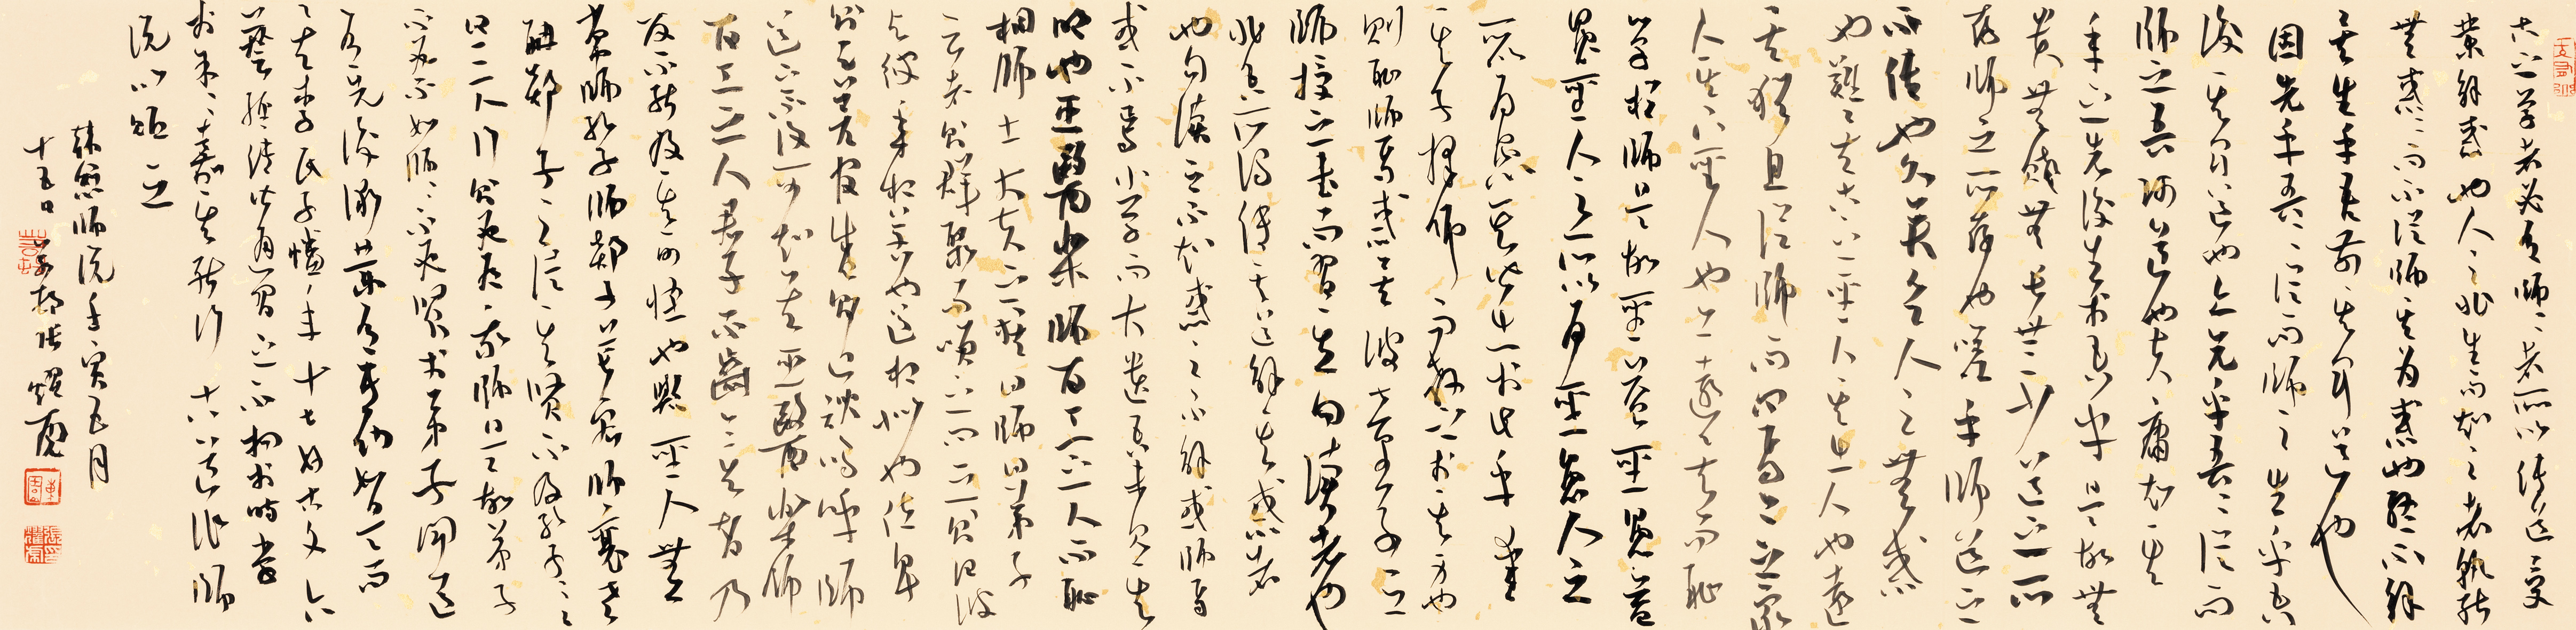 古之學者必有師師者所以傳道受
業解惑也人非生而知之者孰能
無惑惑而不從師其為惑也終不解
矣生乎吾前其聞道也
固先乎吾吾從而師之生乎吾
後其聞道也亦先乎吾吾從而
師之吾師道也夫庸知其
年之先後生於吾乎是故無
貴無賤無長無少道之所
存師之所存也嗟乎師道之
不傳也久矣欲人之無惑
也難矣古之聖人其出人也遠
矣猶且從師而問焉今之眾
人其下聖人也亦遠矣而恥
學於師是故聖益聖愚益
愚聖人之所以為聖愚人之
所以為愚其皆出於此乎愛
其子擇師而教之於其身也
則恥師焉惑矣彼童子之
師授之書而習其句讀者也
非吾所謂傳其道解其惑者
也句讀之不知惑之不解或師焉
或不焉小學而大遺吾未見其
明也巫醫樂師百工之人不恥
相師士大夫之族曰師曰弟子
云者則群聚而笑之問之則曰彼
與彼年相若也道相似也位卑
則足羞官盛則近諛嗚呼師
道之不復可知矣巫醫樂師
百工之人君子不齒今其智乃
反不能及其可怪也歟聖人無
常師孔子師郯子萇弘師襄老
聃郯子之徒其賢不及孔子孔子
曰三人行則必有我師是故弟子
不必不如師師不必賢於弟子聞道
有先後術業有專攻如是而
已矣李氏子蟠年十七好古文六
藝經傳皆通習之不拘於時學
於余余嘉其能行古道作師
說以貽之
韓愈師說壬寅五月
十五日